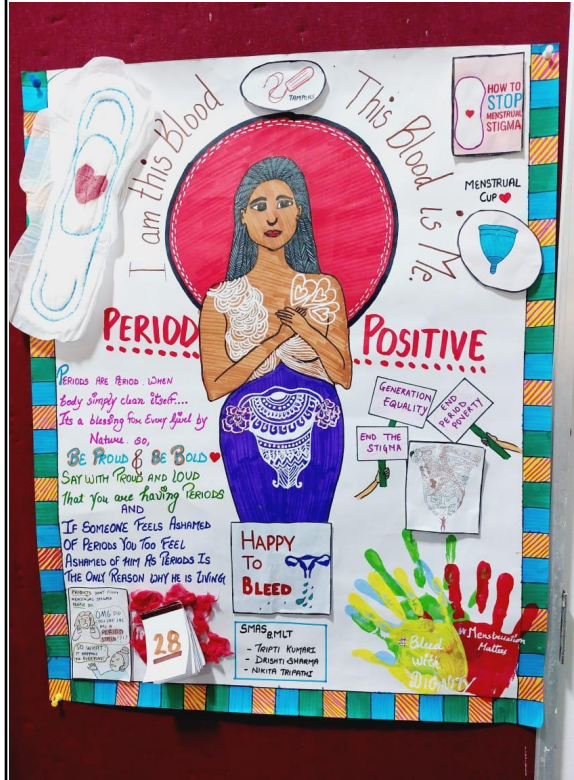 I am this Blood
This Blood is Me.
TAMPONS
HOW TO
STOP
MENSTRUAL
STIGMA
MENSTRUAL
CUP
PERIOD POSITIVE
PERIODS ARE PERIOD. WHEN
Body simply clean itself....
Its a blessing for Every Girl by
Nature. so,
BE PROUD & BE BOLD
SAY WITH PROUD AND LOUD
That you are having PERIODS
AND
IF SOMEONE FEELS ASHAMED
OF PERIODS YOU TOO FEEL
ASHAMED OF HIM AS PERIODS IS
THE ONLY REASON WHY HE IS LIVING
GENERATION
EQUALITY
END
PERIOD
POVERTY
END THE
STIGMA
HAPPY
TO
BLEED
OMG DID
YOU SEE
PERIOD
STAIN
SO WHAT
IT HAPPENS
TO EVERYONE
28
SMAS BMLT
- TRIPTI KUMARI
- DRISHTI SHARMA
- NIKITA TRIPATHI
# Bleed
with
DIGNITY
# Menstruation
Matters